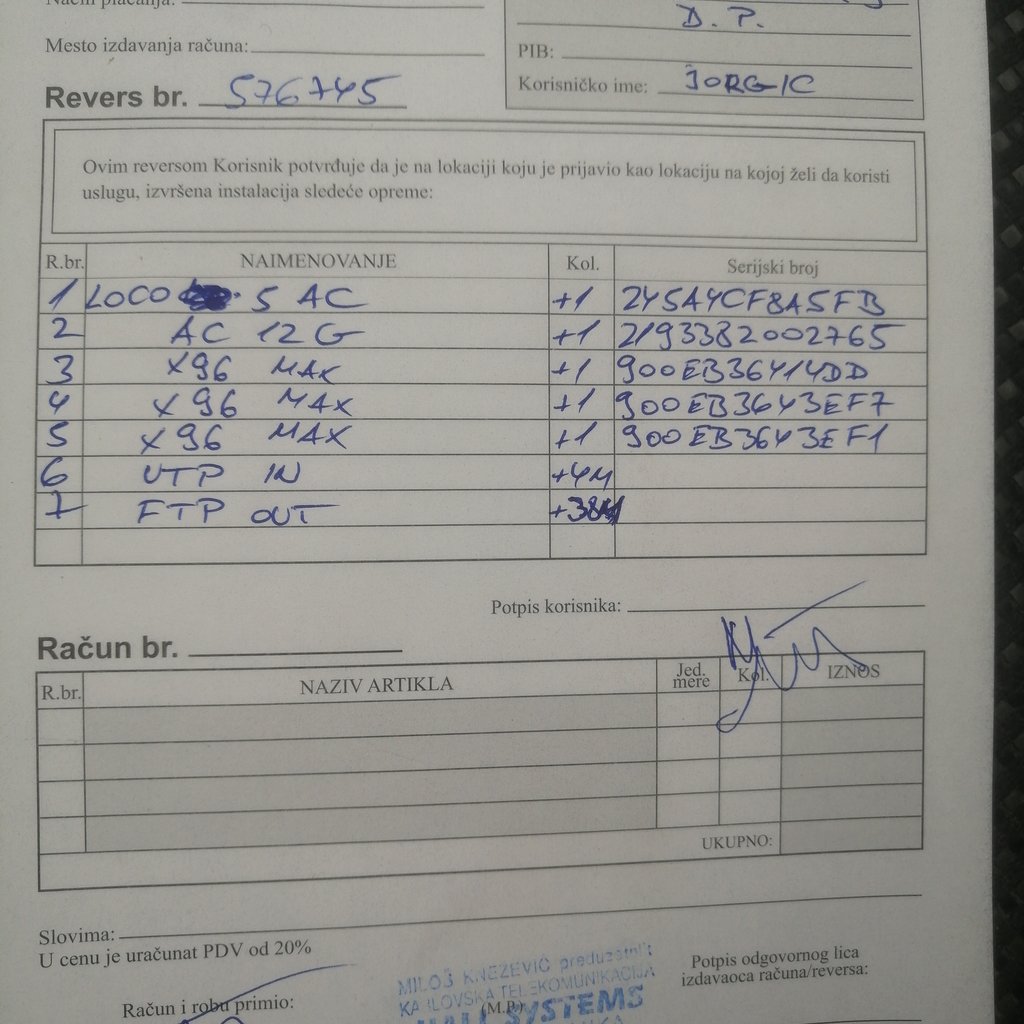 Način plaćanja:
D. P.
Mesto izdavanja računa:
PIB:
Korisničko ime: JORGIC
Revers br. 576745
Ovim reversom Korisnik potvrđuje da je na lokaciji koju je prijavio kao lokaciju na kojoj želi da koristi
uslugu, izvršena instalacija sledeće opreme:
R.br. NAIMENOVANJE Kol. Serijski broj
1 LOCO 5 AC +1 245A4CF8A5FB
2 AC 12 G +1 2193382002765
3 X96 MAX +1 900EB36414DD
4 X96 MAX +1 900EB3643EF7
5 X96 MAX +1 900EB3643EF1
6 UTP IN +4M
7 FTP OUT +38M
Potpis korisnika:
Račun br.
R.br. NAZIV ARTIKLA Jed. mere Kol. IZNOS
UKUPNO:
Slovima:
U cenu je uračunat PDV od 20%
Potpis odgovornog lica
izdavaoca računa/reversa:
Račun i robu primio:
MILOŠ KNEZEVIĆ preduzetnik
KARLOVSKA TELEKOMUNIKACIJA
(M.P.)
SYSTEMS